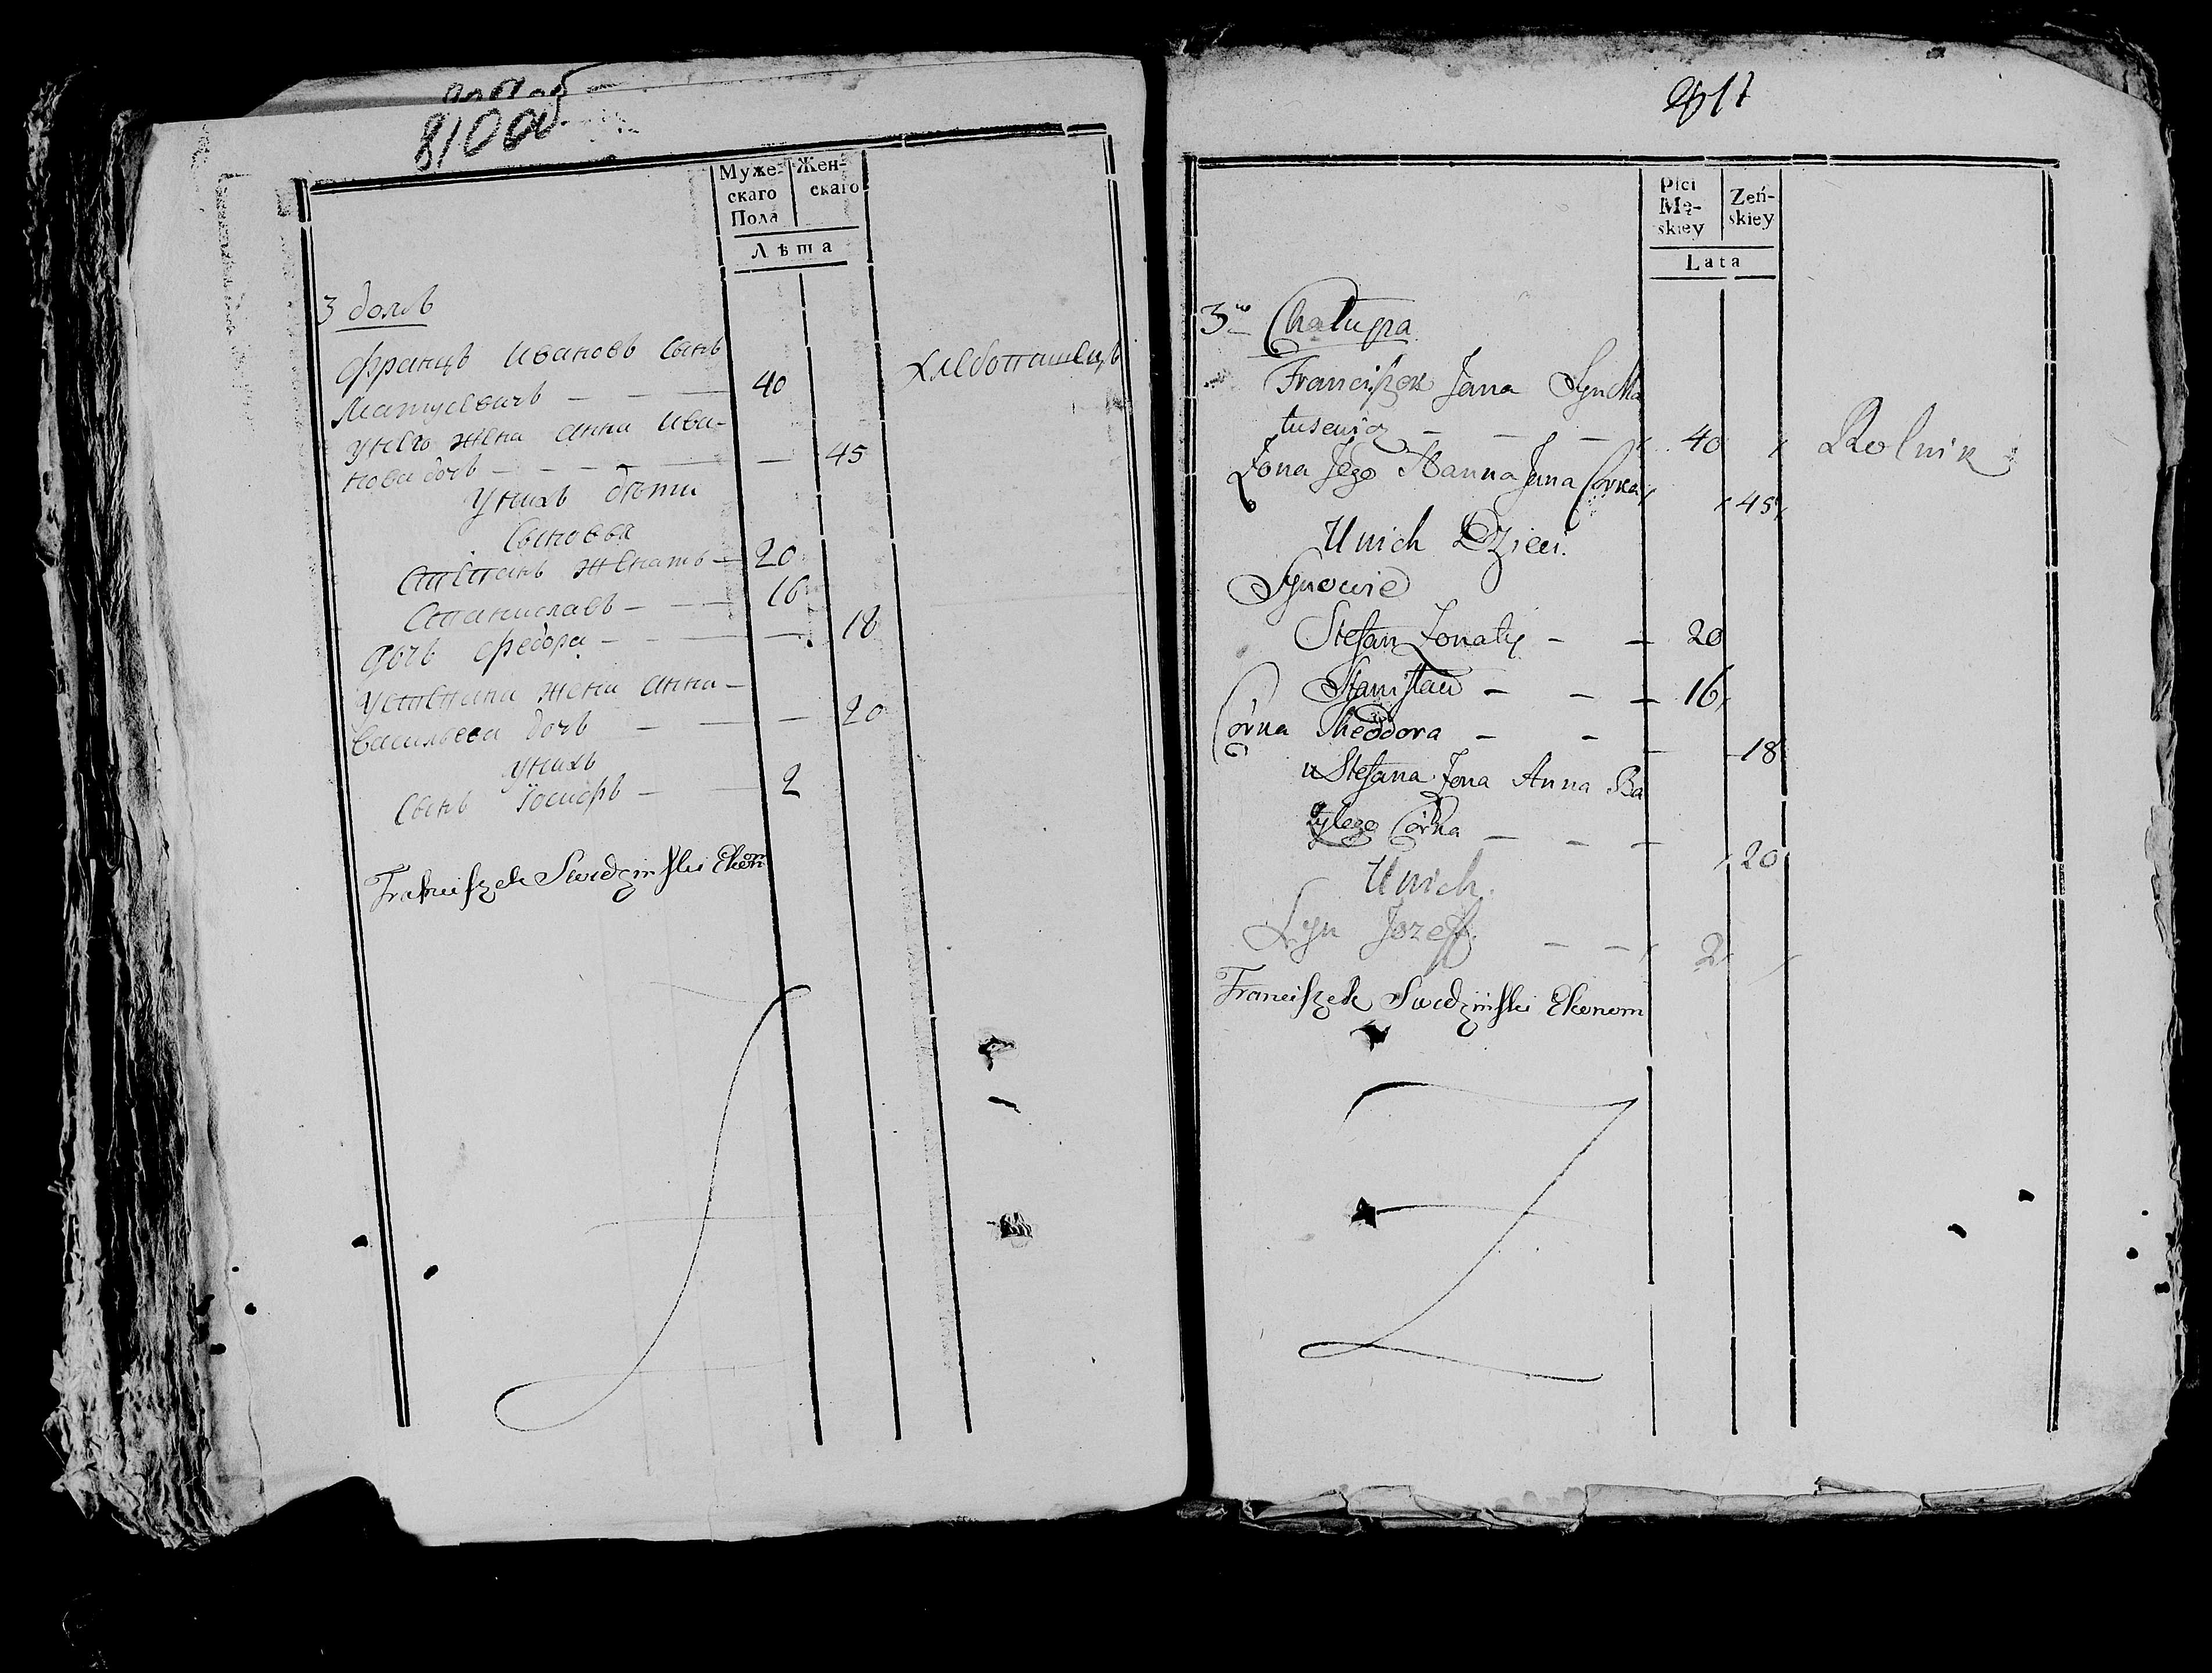 810 об
Муже-
скаго
Пола
Жен-
скаго
Лѣта
3 домъ
Францъ Ивановъ Сынъ
Матусевичь — — — 40 хлебопашецъ
унего жена анна Ива-
нова дочь — — — — 45
Унихъ дѣти
Сыновья
Степанъ женатъ — 20
Станиславъ — — 16
Дочь Федора — — — 18
Устепана жена анна —
Васильева дочь — — — 20
унихъ
Сынъ Іосифъ — — 2
Franciszek Swedzinski Ekon
Płci
Mę-
skiey
Zeń-
skiey
Lata
3cia Chałupa
Franciszek Jana Syn Ma
tusewicz — — — 40 Rolnik
Zona Jego Hanna Jana Corka 45
Unich Dzieci.
Synowie
Stefan Zonaty — — 20
Stanisław — — — 16
Córka Theodora — — — 18
u Stefana Zona Anna Ba
zylego Córka — — — 20
Unich.
Syn Jozeff. — — 2
Franciszek Swedzinski Ekonom